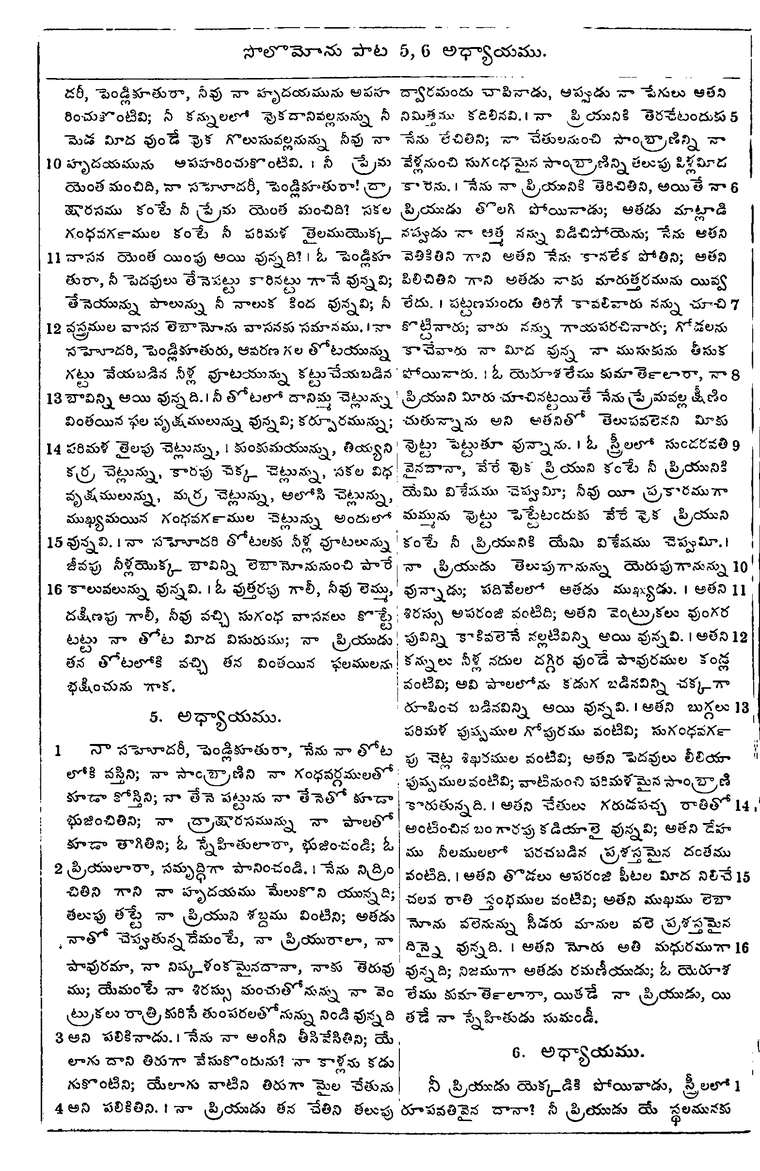 సాలొమోను పాట 5, 6 అధ్యాయము.
దరీ, పెండ్లికూతురా, నీవు నా హృదయమును అపహ
రించుకొంటివి; నీ కన్నులలో వుకదానివల్లనున్ను నీ
మెడ మీద వుండే వుక గొలుసువల్లనున్ను నీవు నా
10 హృదయమును అపహరించుకొంటివి. । నీ ప్రేమ
యెంత మంచిది, నా సహోదరీ, పెండ్లికూతురా! ద్రా
క్షారసము కంటే నీ ప్రేమ యెంత మంచిది? సకల
గంధవర్గముల కంటే నీ పరిమళ తైలముయొక్క
11 వాసన యెంత యింపు అయి వున్నది? । ఓ పెండ్లికూ
తురా, నీ పెదవులు తేనెపట్టు కారినట్టు గానే వున్నవి;
తేనెయున్ను పాలున్ను నీ నాలుక కింద వున్నవి; నీ
12 వస్త్రముల వాసన లెబానోను వాసనకు సమానము. । నా
సహోదరి, పెండ్లికూతురు, ఆవరణ గల తోటయున్ను
గట్టు వేయబడిన నీళ్ల వూటయున్ను కట్టు చేయబడిన
13 బావిన్ని అయి వున్నది. । నీ తోటలో దానిమ్మ చెట్లున్ను
వింతయిన ఫల వృక్షములున్ను వున్నవి; కర్పూరమున్ను;
14 పరిమళ తైలపు చెట్లున్ను, । కుంకుమయున్ను, తియ్యని
కర్ర చెట్లున్ను, కారపు చెక్క చెట్లున్ను, సకల విధ
వృక్షములున్ను, మర్ర చెట్లున్ను, ఆలోసి చెట్లున్ను,
ముఖ్యమయిన గంధవర్గముల చెట్లున్ను అందులో
15 వున్నవి. । నా సహోదరి తోటలకు నీళ్ల వూటలున్ను
జీవపు నీళ్లయొక్క బావిన్ని లెబానోనునుంచి పారే
16 కాలువలున్ను వున్నవి. । ఓ వుత్తరపు గాలీ, నీవు లెమ్ము,
దక్షిణపు గాలీ, నీవు వచ్చి సుగంధ వాసనలు కొట్టే
టట్టు నా తోట మీద విసురుము; నా ప్రియుడు
తన తోటలోకి వచ్చి తన వింతయిన ఫలములను
భక్షించును గాక.
5. అధ్యాయము.
1 నా సహోదరీ, పెండ్లికూతురా, నేను నా తోట
లోకి వస్తిని; నా సాంబ్రాణిని నా గంధవర్గములతో
కూడా కోస్తిని; నా తేనె పట్టును నా తేనెతో కూడా
భుజించితిని; నా ద్రాక్షారసమున్ను నా పాలతో
కూడా తాగితిని; ఓ స్నేహితులారా, భుజించండి; ఓ
2 ప్రియులారా, సమృద్ధిగా పానించండి. । నేను నిద్రిం
చితిని గాని నా హృదయము మేలుకొని యున్నది;
తలుపు తట్టే నా ప్రియుని శబ్దము వింటిని; అతడు
నాతో చెప్పుతున్నదేమంటే, నా ప్రియురాలా, నా
పావురమా, నా నిష్కళంకమైనదానా, నాకు తెరువు
ము; యేమంటే నా శిరస్సు మంచుతోనున్ను నా వెం
ట్రుకలు రాత్రి కురిసే తుంపరలతోనున్ను నిండి వున్నది
3 అని పలికినాడు. । నేను నా అంగీని తీసివేసితిని; యే
లాగు దాని తిరుగా వేసుకొందును? నా కాళ్లను కడు
గుకొంటిని; యేలాగు వాటిని తిరుగా మైల చేతును
4 అని పలికితిని. । నా ప్రియుడు తన చేతిని తలుపు
ద్వారమందు చాపినాడు, అప్పుడు నా పేగులు అతని
నిమిత్తము కదిలినవి. । నా ప్రియునికి తెరచేటందుకు 5
నేను లేచితిని; నా చేతులనుంచి సాంబ్రాణిన్ని నా
వేళ్లనుంచి సుగంధమైన సాంబ్రాణిన్ని తలుపు పిళ్లమీద
కారెను. । నేను నా ప్రియునికి తెరిచితిని, అయితే నా 6
ప్రియుడు తొలగి పోయినాడు; అతడు మాట్లాడి
నప్పుడు నా ఆత్మ నన్ను విడిచిపోయెను; నేను అతని
వెతికితిని గాని అతని నేను కానలేక పోతిని; అతని
పిలిచితిని గాని అతడు నాకు మారుత్తరమును యివ్వ
లేదు. । పట్టణమందు తిరిగే కావలివారు నన్ను చూచి 7
కొట్టినారు; వారు నన్ను గాయపరచినారు; గోడలను
కాచేవారు నా మీద వున్న నా ముసుకును తీసుక
పోయినారు. । ఓ యెరూశలేము కుమార్తెలారా, నా 8
ప్రియుని మీరు చూచినట్టయితే నేను ప్రేమవల్ల క్షీణిం
చుతున్నాను అని అతనితో తెలుపవలెనని మీకు
వొట్టు పెట్టుతూ వున్నాను. । ఓ స్త్రీలలో సుందరవతి 9
వైనదానా, వేరే వుక ప్రియుని కంటే నీ ప్రియునికి
యేమి విశేషము చెప్పుమీ; నీవు యీ ప్రకారముగా
మమ్మును వొట్టు పెట్టేటందుకు వేరే వుక ప్రియుని
కంటే నీ ప్రియునికి యేమి విశేషము చెప్పుమీ. ।
నా ప్రియుడు తెలుపుగానున్ను యెరుపుగానున్ను 10
వున్నాడు; పదివేలలో అతడు ముఖ్యుడు. । అతని 11
శిరస్సు అపరంజి వంటిది; అతని వెంట్రుకలు వుంగర
పువిన్ని కాకివలెనే నల్లటివిన్ని అయి వున్నవి. । అతని 12
కన్నులు నీళ్ల నదుల దగ్గిర వుండే పావురముల కండ్ల
వంటివి; అవి పాలలోను కడుగ బడినవిన్ని చక్కగా
రూపించ బడినవిన్ని అయి వున్నవి. । అతని బుగ్గలు 13
పరిమళ పుష్పముల గోపురము వంటివి; సుగంధవర్గ
పు చెట్ల శిఖరముల వంటివి; అతని పెదవులు లీలియా
పుష్పములవంటివి; వాటినుంచి పరిమళమైన సాంబ్రాణి
కారుతున్నది. । అతని చేతులు గరుడపచ్చ రాతితో 14
అంటించిన బంగారపు కడియాలై వున్నవి; అతని దేహ
ము నీలములలో పరచబడిన ప్రశస్తమైన దంతము
వంటిది. । అతని తొడలు అపరంజి పీటల మీద నిలిచే 15
చలవ రాతి స్తంభముల వంటివి; అతని ముఖము లెబా
నోను వలెనున్ను సీడరు మానుల వలె ప్రశస్తమైన
దిన్నై వున్నది. । అతని నోరు అతి మధురముగా 16
వున్నది; నిజముగా అతడు రమణీయుడు; ఓ యెరూశ
లేము కుమార్తెలారా, యితడే నా ప్రియుడు, యి
తడే నా స్నేహితుడు సుమండీ.
6. అధ్యాయము.
నీ ప్రియుడు యెక్కడికి పోయినాడు, స్త్రీలలో 1
రూపవతివైన దానా? నీ ప్రియుడు యే స్థలమునకు